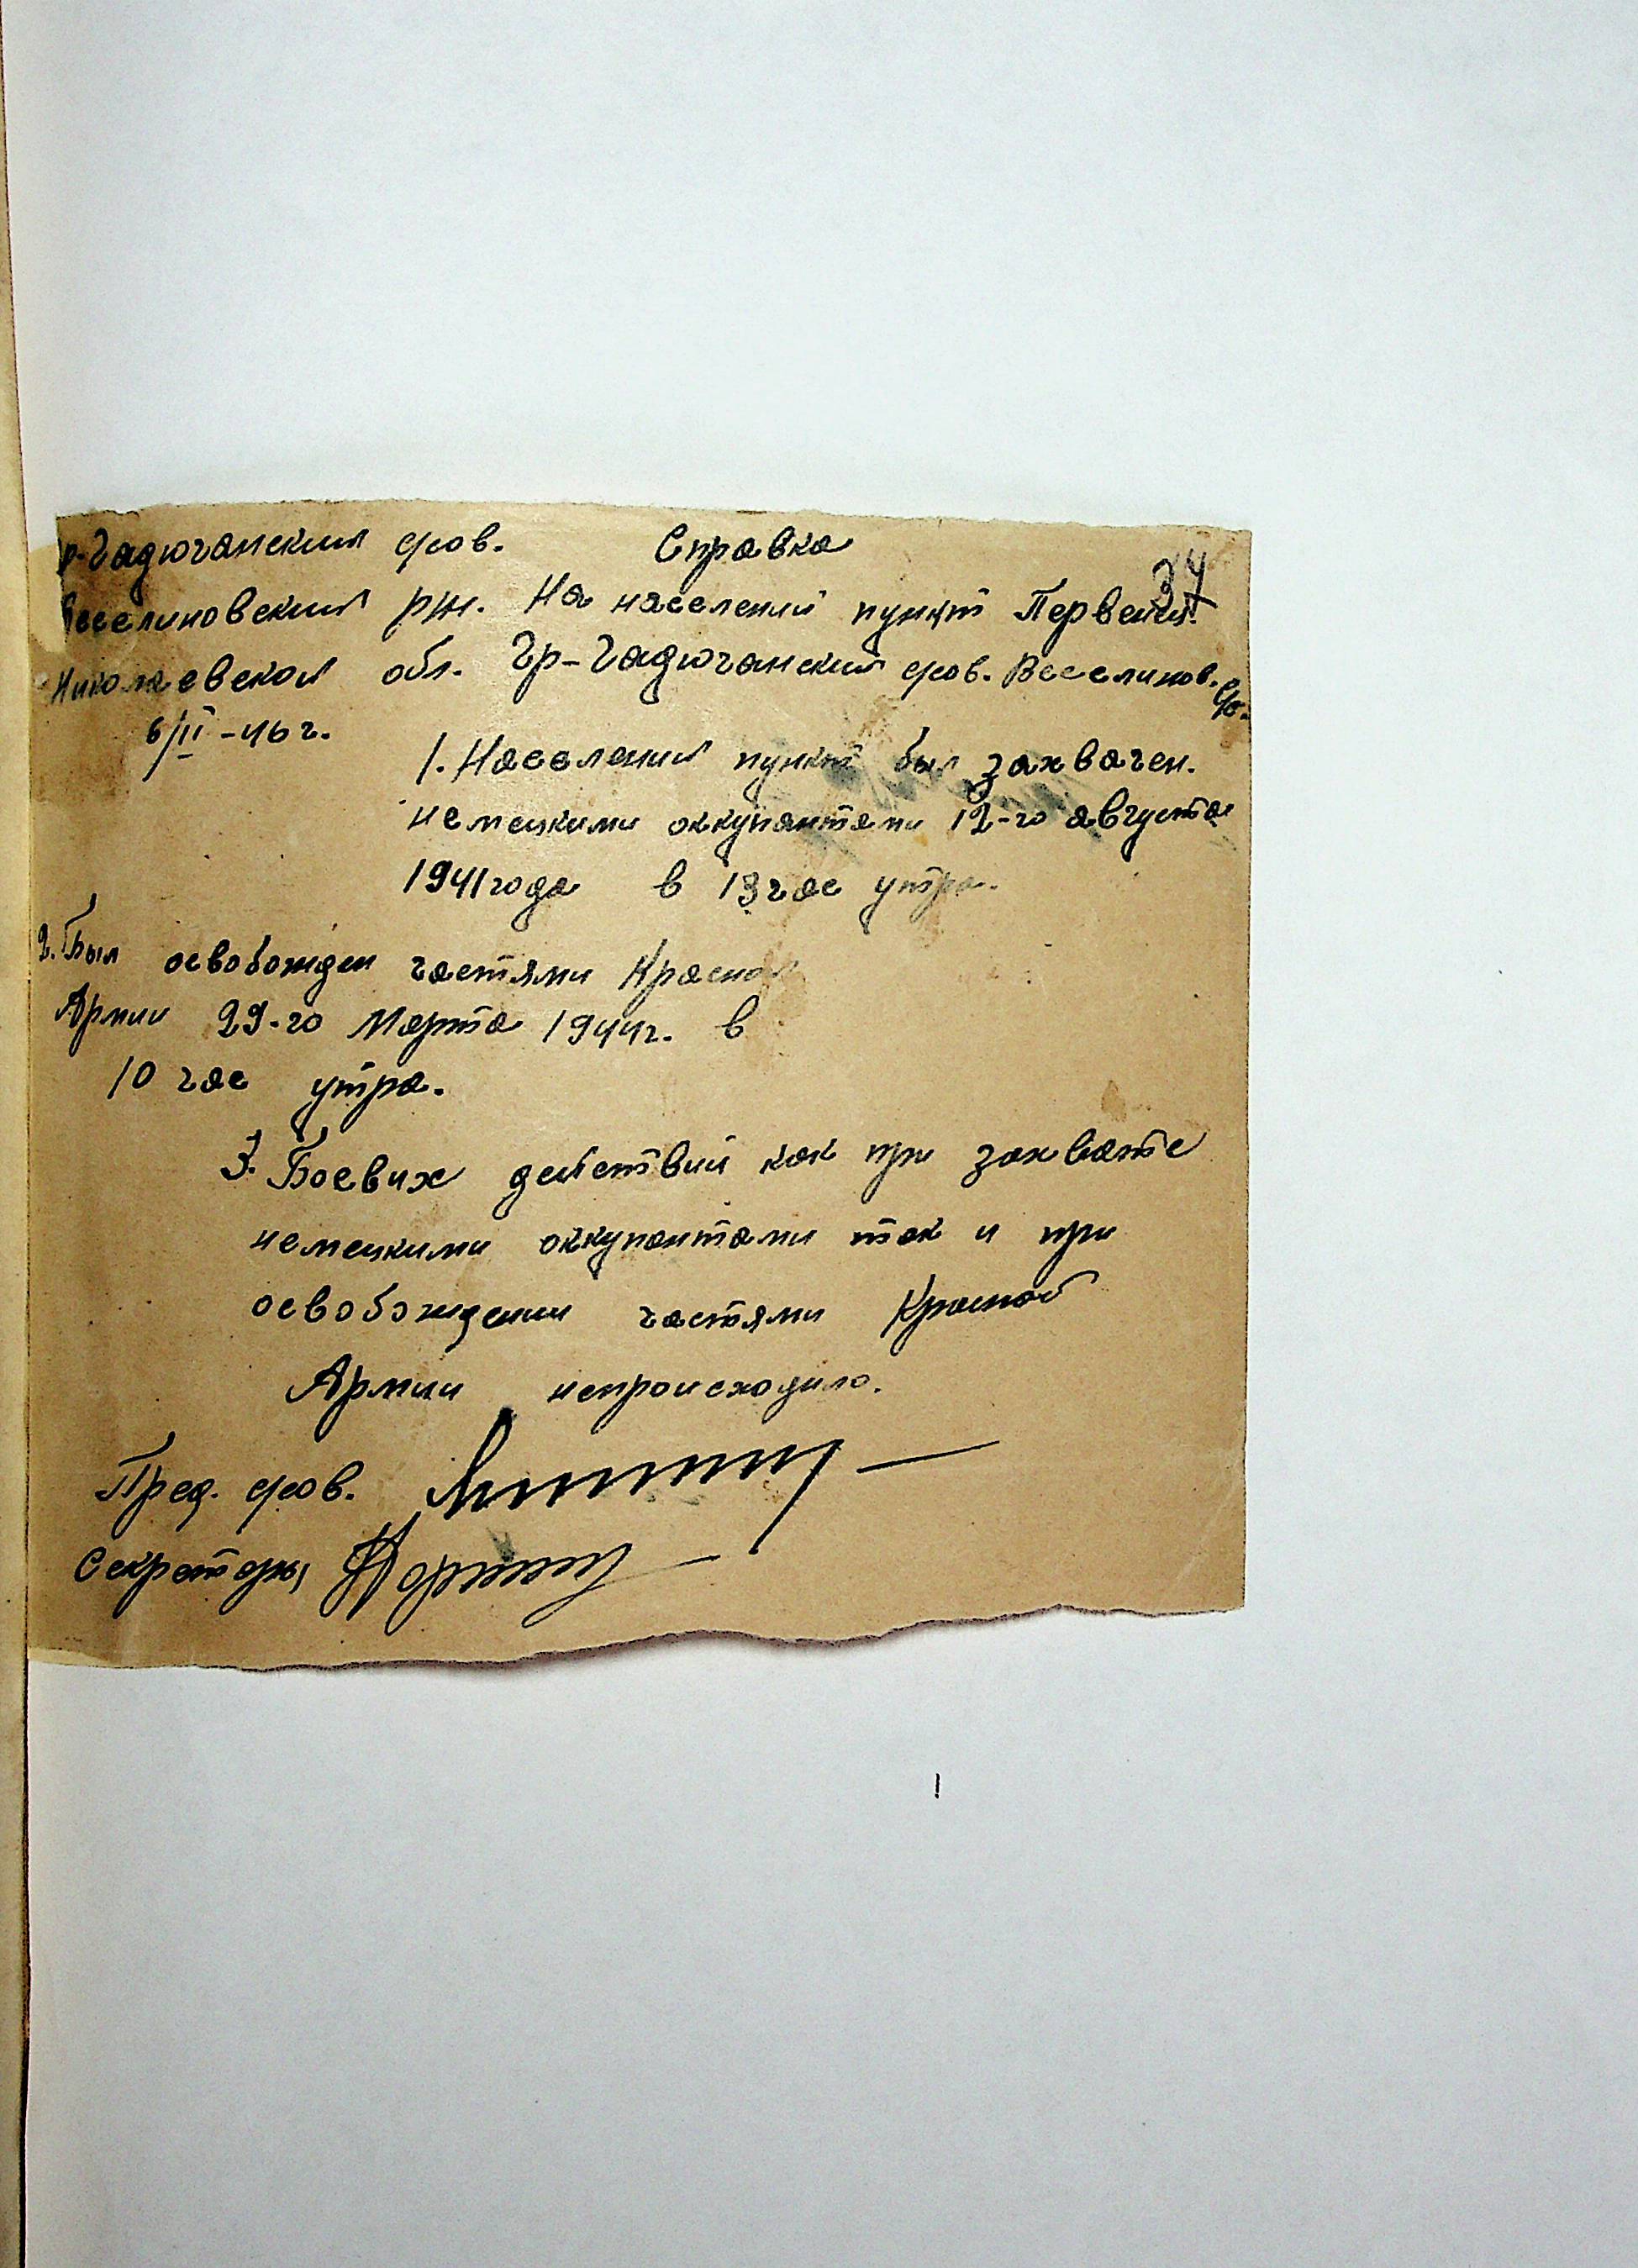 р-Гадючанский с/сов. Справка
34
Веселиновский р-н. На населений пункт Первенец.
Николаевской обл. Гр-Гадючанский с/сов. Веселинов.
6/II-46 г.
1. Населений пункт был захвачен.
немецкими оккупантами 12-го августа
1941 года в 13 час утра.
2. Был освобожден частями Красной
Армии 29-го Марта 1944 г. в
10 час утра.
3. Боевих действий как при захвате
немецкими оккупантами так и при
освобождении частями Красной
Армии непроисходило.
Пред. с/сов.
Секретарь